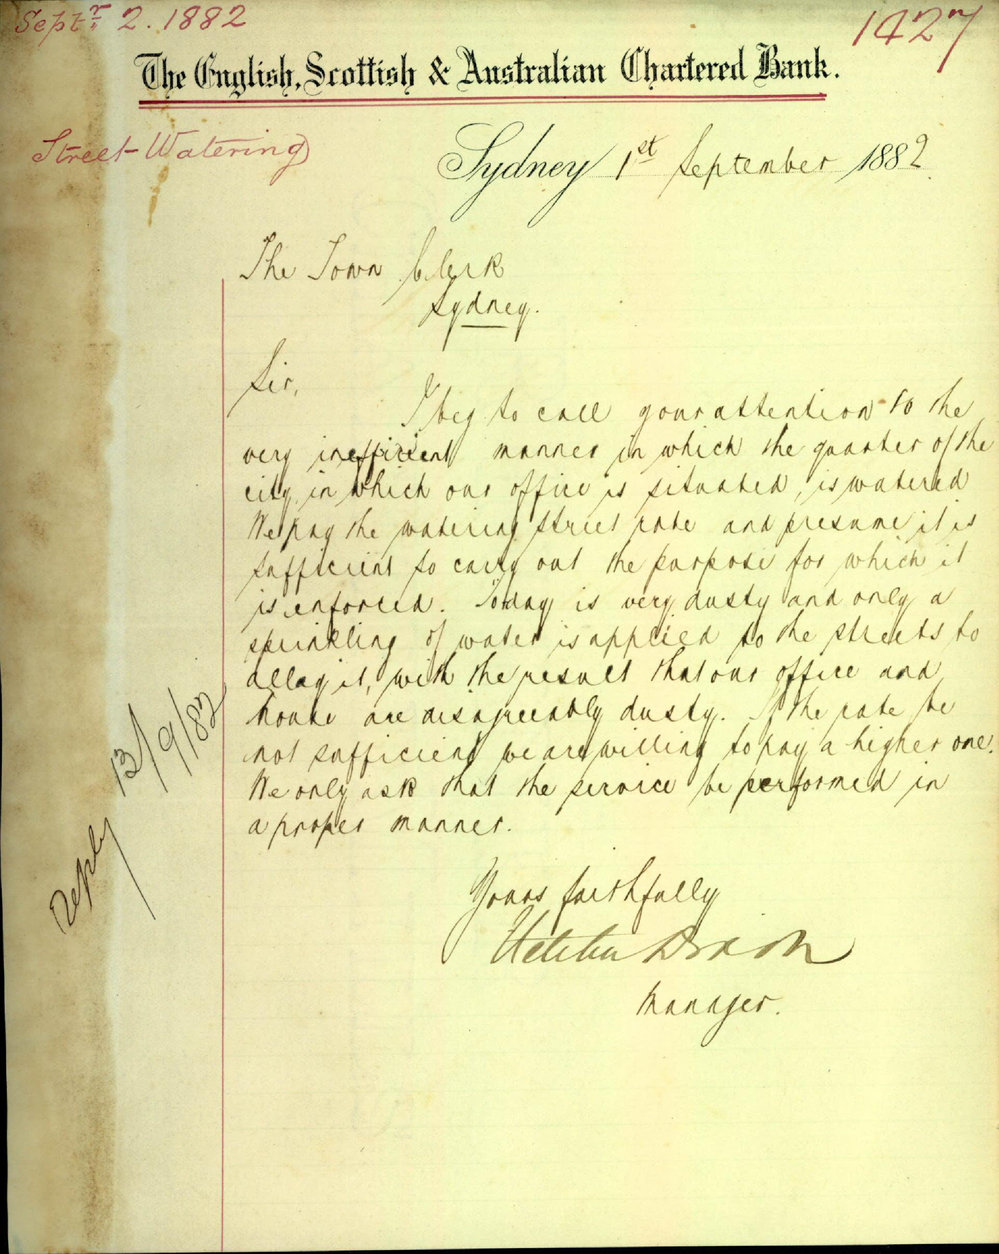 Septr 2. 1882
1427
The English, Scottish & Australian Chartered Bank.
Street Watering
Sydney 1st September 1882.
The Town Clerk
Sydney.
Sir,
I beg to call your attention to the
very inefficient manner in which the quarter of the
city in which our office is situated, is watered
We pay the watering street rate and presume it is
sufficient to carry out the purpose for which it
is enforced. Today is very dusty and only a
sprinkling of water is applied to the streets to
allay it, with the result that our office and
house are disagreeably dusty. If the rate be
not sufficient we are willing to pay a higher one.
We only ask that the service be performed in
a proper manner.
Reply 13/9/82
Yours faithfully
Manager.